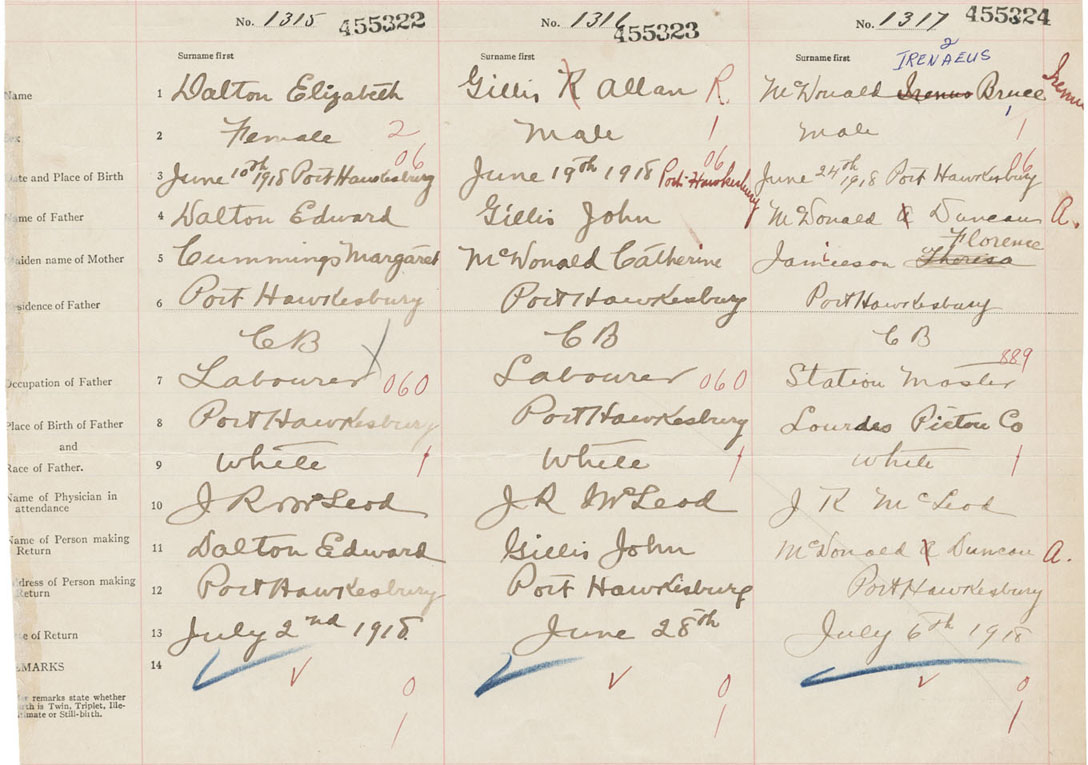 No. 1315 455322 No. 1316 455323 No. 1317 455324
2
IRENAEUS
Surname first Surname first Surname first
Name 1 Dalton Elizabeth Gillis R Allan R. McDonald Irenus Bruce Irenus
1
2 Female 2 Male 1 male 1
06 06 06
ate and Place of Birth 3 June 10th 1918 Port Hawkesbury June 19th 1918 Port Hawkesbury June 24th 1918 Port Hawkesbury
Name of Father 4 Dalton Edward Gillis John McDonald Duncan A.
Florence
aiden name of Mother 5 Cummings Margaret McDonald Catherine Jamieson Theresa
sidence of Father 6 Port Hawkesbury Port Hawkesbury Port Hawkesbury
C B C B C B
889
Occupation of Father 7 Labourer 060 Labourer 060 Station Master
Place of Birth of Father 8 Port Hawkesbury Port Hawkesbury Lourdes Pictou Co
and
Race of Father. 9 White 1 White 1 White 1
Name of Physician in
attendance 10 J R McLeod J R McLeod J R McLeod
Name of Person making
Return 11 Dalton Edward Gillis John McDonald Duncan A.
ddress of Person making
Return 12 Port Hawkesbury Port Hawkesbury Port Hawkesbury
te of Return 13 July 2nd 1918. June 28th July 6th 1918
EMARKS 14
0 0 0
er remarks state whether
rth is Twin, Triplet, Ille-
timate or Still-birth.
1 1 1